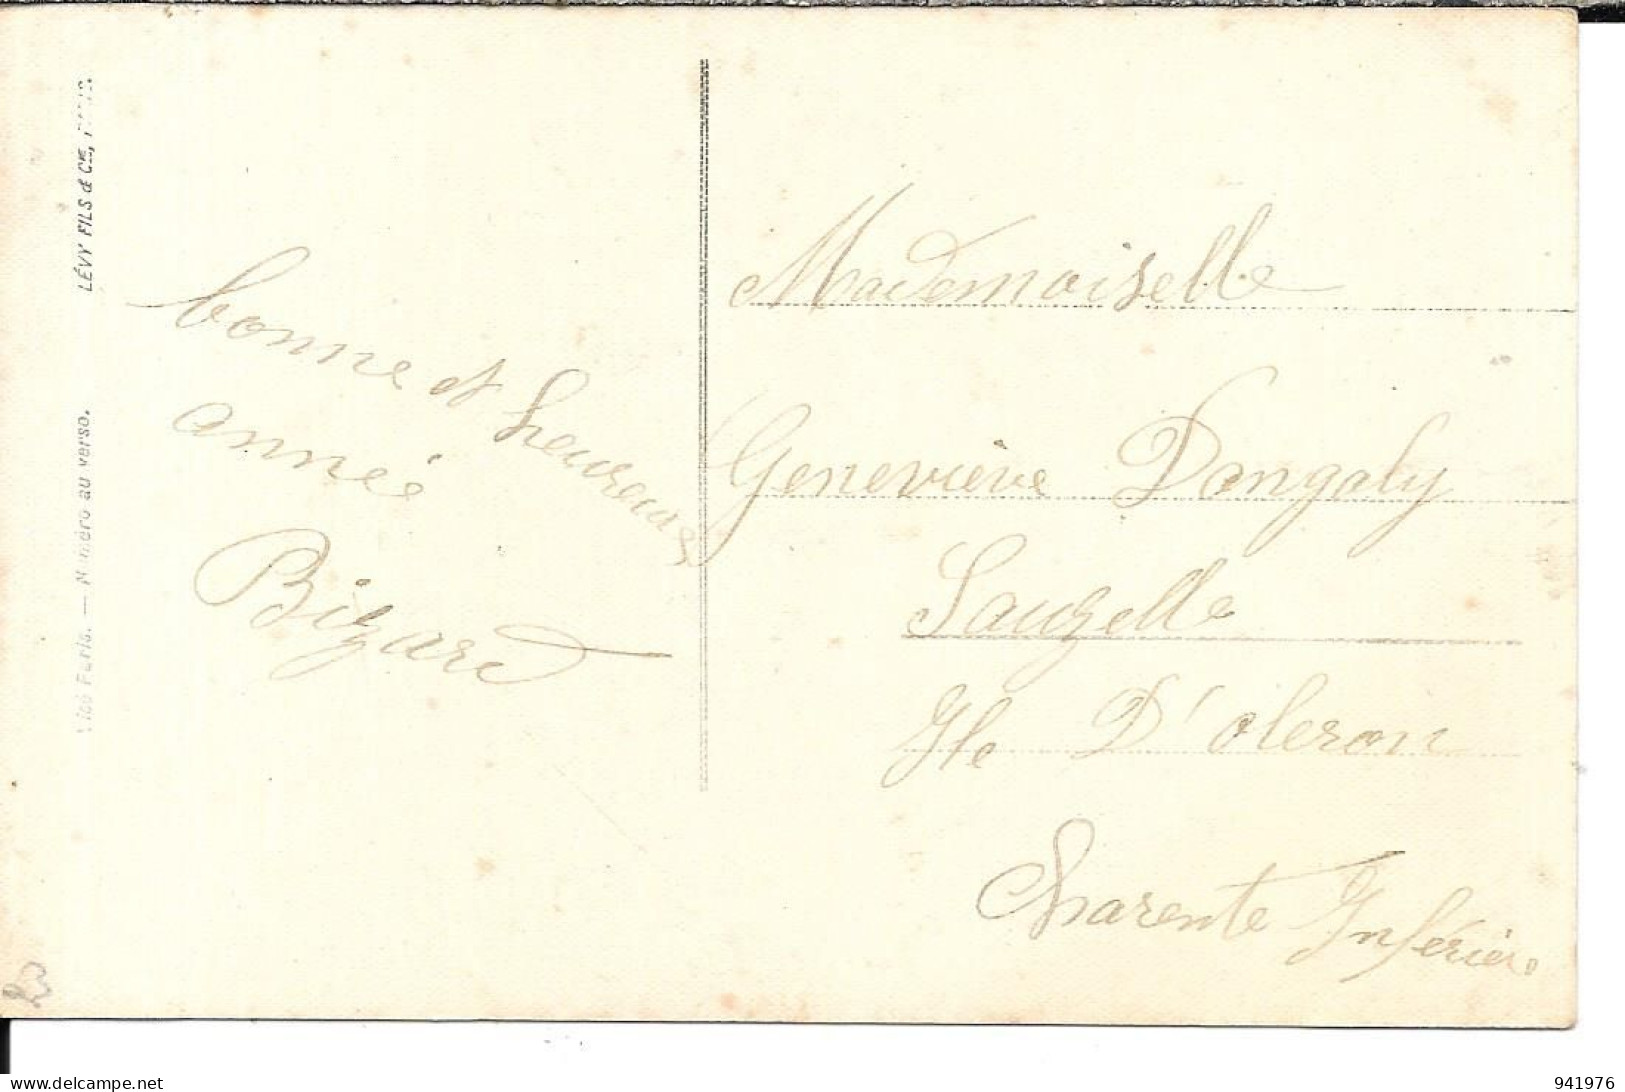 LÉVY FILS & CIE, PARIS.
Visé PARIS. — Numéro au verso.
bonne et heureuse
année
Bizard
Mademoiselle
Geneviève Dangaly
Sauzelle
Ile D'oleron
Charente Inférieu
delcampe.net
941976